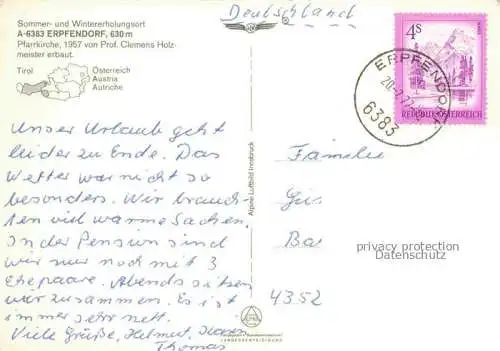 Deutschland
Sommer- und Wintererholungsort
A-6383 ERPFENDORF, 630 m
Pfarrkirche, 1957 von Prof. Clemens Holz-
meister erbaut.
Tirol
Österreich
Austria
Autriche
4S
REPUBLIK ÖSTERREICH
ERPFENDORF
6383
Unser Urlaub geht
leider zu Ende. Das
Wetter war nicht so
besonders. Wir brauch-
ten viel warme Sachen.
In der Pension sind
wir nur noch mit 3
Ehepaare. Abends sitzen
wir zusammen. Es ist
immer sehr nett.
Viele Grüße, Helmut,
Thomas
Alpine Luftbild Innsbruck
Familie
Gis
Ba
4352
privacy protection
Datenschutz
LANDESVERTEIDIGUNG